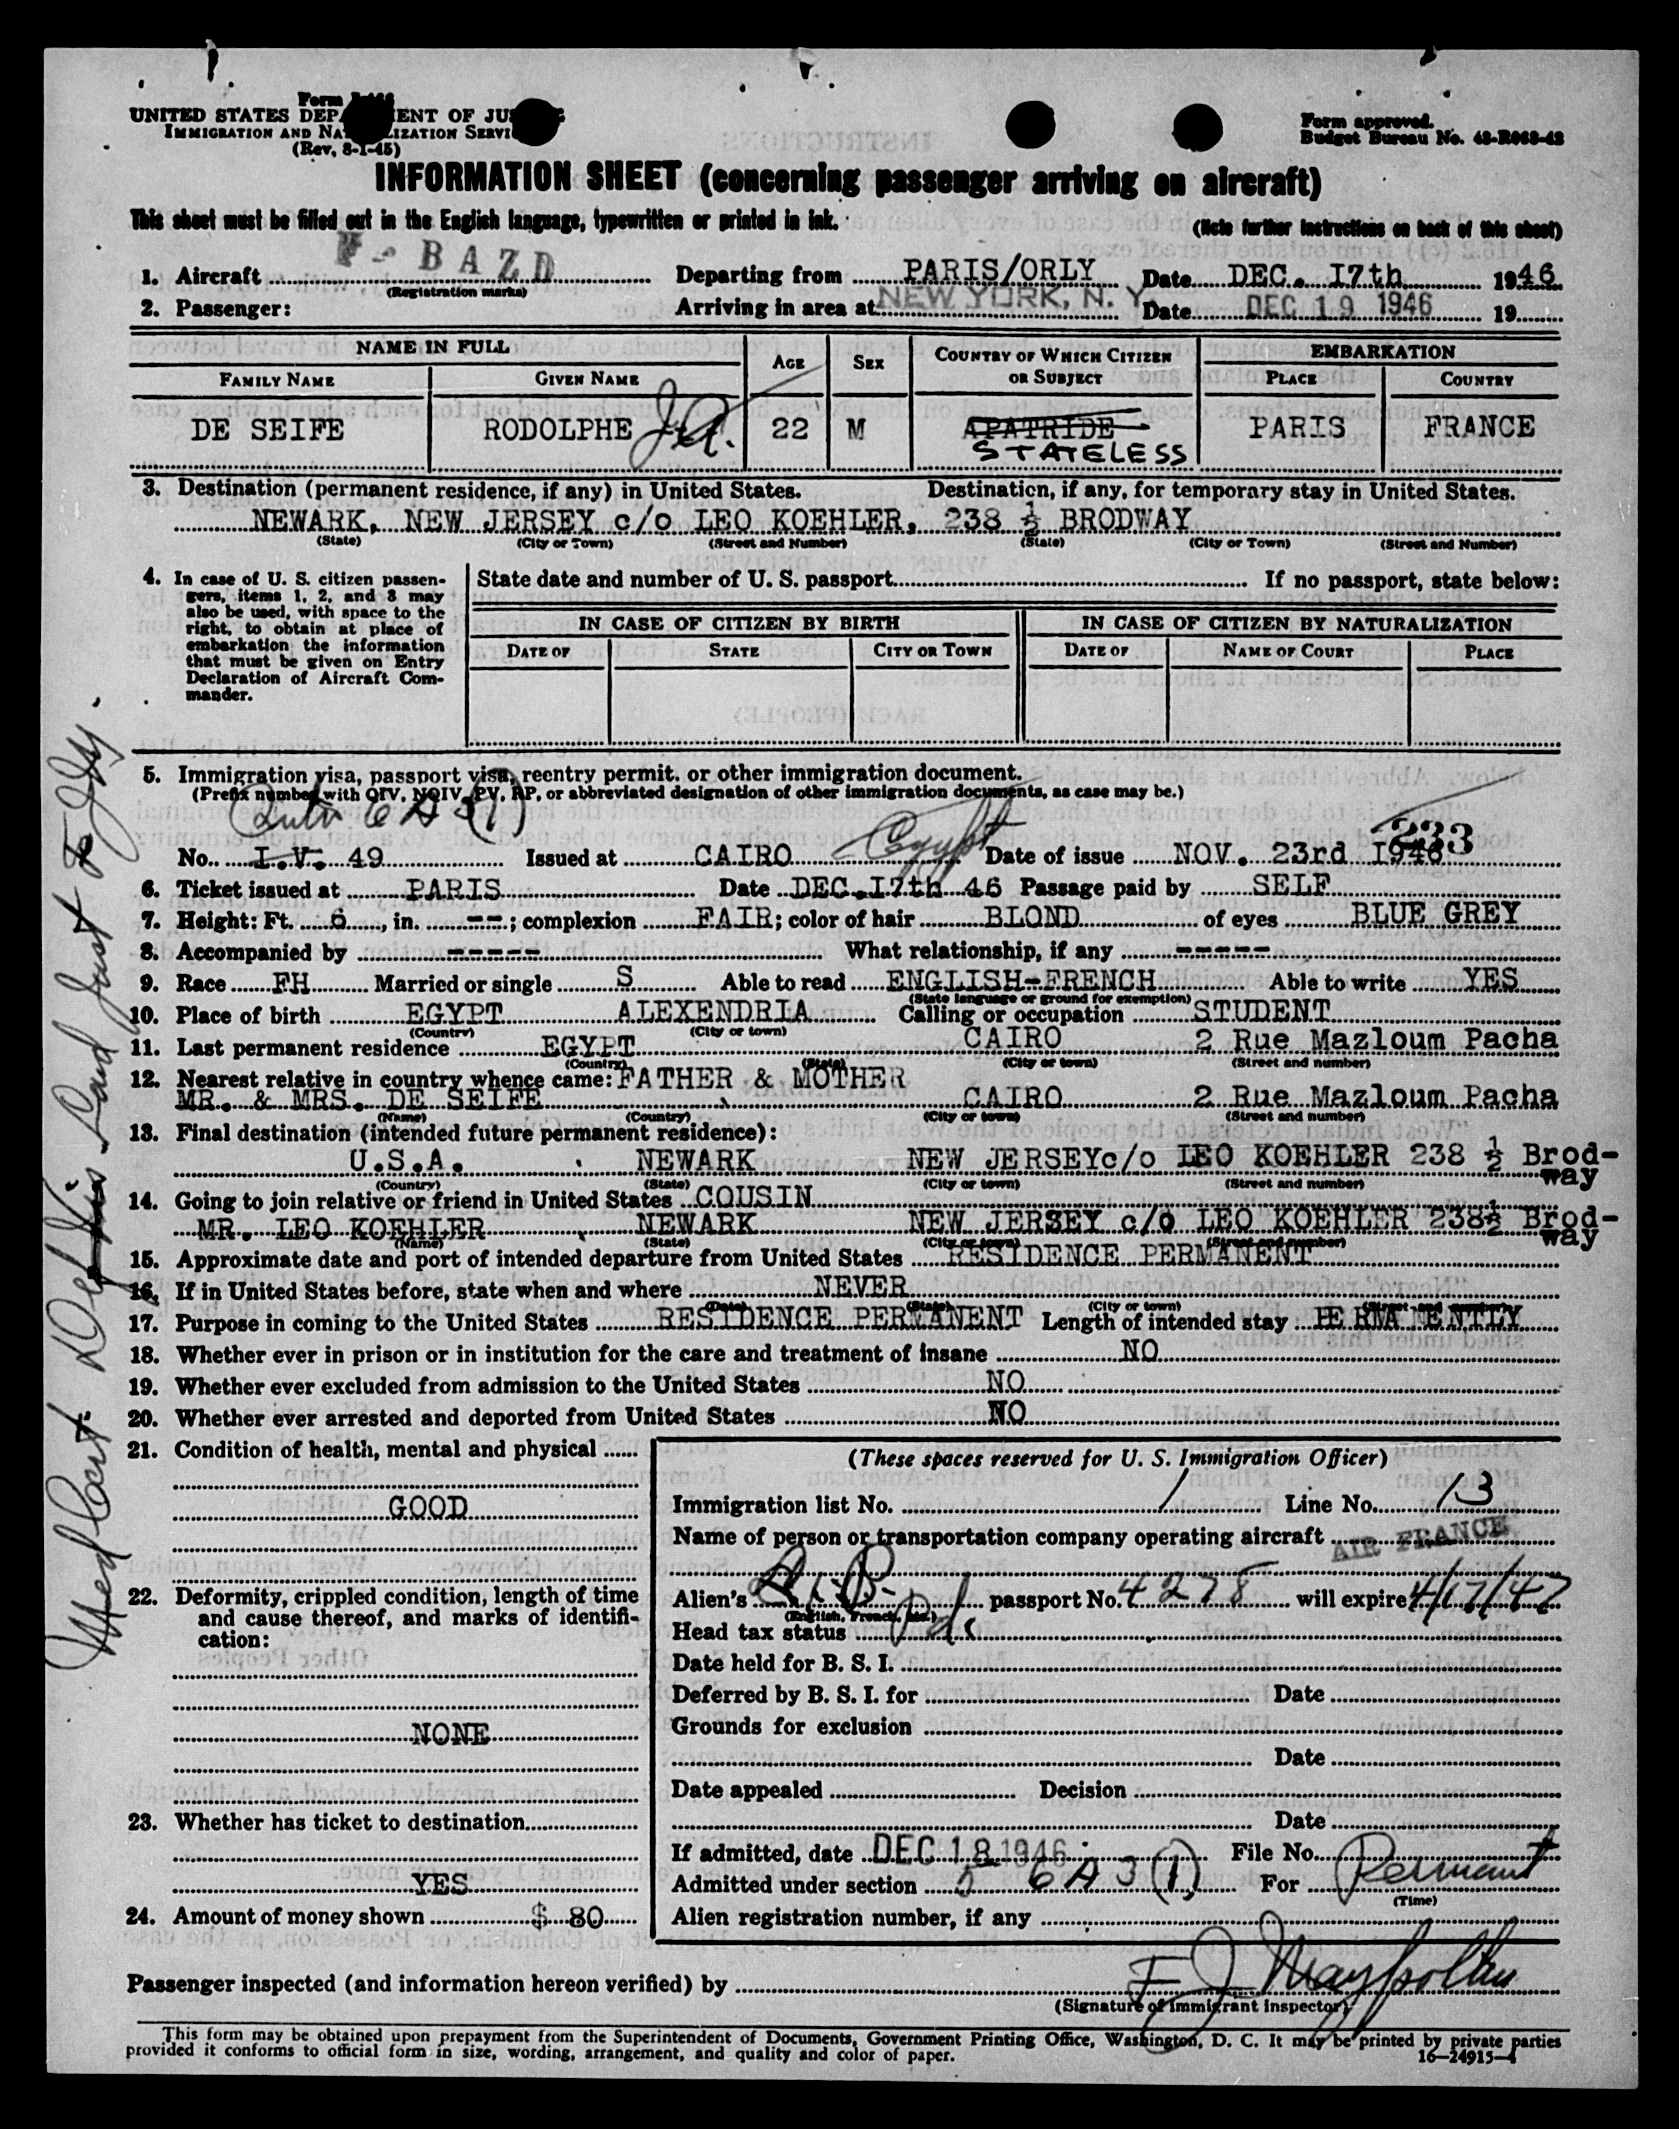 Form I-466
UNITED STATES DEPARTMENT OF JUSTICE
IMMIGRATION AND NATURALIZATION SERVICE
(Rev. 8-1-45)
Form approved.
Budget Bureau No. 43-R068-42
INFORMATION SHEET (concerning passenger arriving on aircraft)
This sheet must be filled out in the English language, typewritten or printed in ink.
(Note further instructions on back of this sheet)
1. Aircraft F-BAZD Departing from PARIS/ORLY Date DEC. 17th 1946
(Registration marks)
2. Passenger: Arriving in area at NEW YORK, N. Y. Date DEC 19 1946 19
NAME IN FULL AGE SEX COUNTRY OF WHICH CITIZEN OR SUBJECT EMBARKATION
FAMILY NAME GIVEN NAME PLACE COUNTRY
DE SEIFE RODOLPHE J.A. 22 M APATRIDE PARIS FRANCE
STATELESS
3. Destination (permanent residence, if any) in United States. Destination, if any, for temporary stay in United States.
NEWARK, NEW JERSEY c/o LEO KOEHLER, 238 ½ BRODWAY
(State) (City or Town) (Street and Number) (State) (City or Town) (Street and Number)
4. In case of U. S. citizen passen-
gers, items 1, 2, and 3 may
also be used, with space to the
right, to obtain at place of
embarkation the information
that must be given on Entry
Declaration of Aircraft Com-
mander.
State date and number of U. S. passport If no passport, state below:
IN CASE OF CITIZEN BY BIRTH IN CASE OF CITIZEN BY NATURALIZATION
DATE OF STATE CITY OR TOWN DATE OF NAME OF COURT PLACE
5. Immigration visa, passport visa, reentry permit, or other immigration document.
(Prefix number with QIV, NQIV, PV, RP, or abbreviated designation of other immigration documents, as case may be.)
6 A 3(1)
Egypt 233
No. I.V. 49 Issued at CAIRO Date of issue NOV. 23rd 1946
6. Ticket issued at PARIS Date DEC.17th 46 Passage paid by SELF
7. Height: Ft. 6, in. --; complexion FAIR; color of hair BLOND of eyes BLUE GREY
8. Accompanied by ----- What relationship, if any -----
9. Race FH Married or single S Able to read ENGLISH-FRENCH Able to write YES
(State language or ground for exemption)
10. Place of birth EGYPT ALEXENDRIA Calling or occupation STUDENT
(Country) (City or town)
11. Last permanent residence EGYPT CAIRO 2 Rue Mazloum Pacha
(Country) (State) (City or town) (Street and number)
12. Nearest relative in country whence came: FATHER & MOTHER
MR. & MRS. DE SEIFE CAIRO 2 Rue Mazloum Pacha
(Name) (Country) (City or town) (Street and number)
13. Final destination (intended future permanent residence):
U.S.A. NEWARK NEW JERSEY c/o LEO KOEHLER 238 ½ Brod-
way
(Country) (State) (City or town) (Street and number)
14. Going to join relative or friend in United States COUSIN
MR. LEO KOEHLER NEWARK NEW JERSEY c/o LEO KOEHLER 238½ Brod-
way
(Name) (State) (City or town) (Street and number)
15. Approximate date and port of intended departure from United States RESIDENCE PERMANENT
16. If in United States before, state when and where NEVER
(Date) (State) (City or town) (Street and number)
17. Purpose in coming to the United States RESIDENCE PERMANENT Length of intended stay PERMANENTLY
18. Whether ever in prison or in institution for the care and treatment of insane NO
19. Whether ever excluded from admission to the United States NO
20. Whether ever arrested and deported from United States NO
21. Condition of health, mental and physical
GOOD
22. Deformity, crippled condition, length of time
and cause thereof, and marks of identifi-
cation:
NONE
23. Whether has ticket to destination
YES
24. Amount of money shown $ 80
(These spaces reserved for U. S. Immigration Officer)
Immigration list No. 1 Line No. 13
Name of person or transportation company operating aircraft AIR FRANCE
Alien's passport No. 4278 will expire 4/17/47
(English, French, etc.)
Head tax status Pd.
Date held for B. S. I.
Deferred by B. S. I. for Date
Grounds for exclusion
Date
Date appealed Decision
Date
If admitted, date DEC 18 1946 File No.
Admitted under section 5 6 A 3 (1) For Permanent
(Time)
Alien registration number, if any
Passenger inspected (and information hereon verified) by
(Signature of Immigrant Inspector)
This form may be obtained upon prepayment from the Superintendent of Documents, Government Printing Office, Washington, D. C. It may be printed by private parties
provided it conforms to official form in size, wording, arrangement, and quality and color of paper.
16—24915-1
Med Cert.